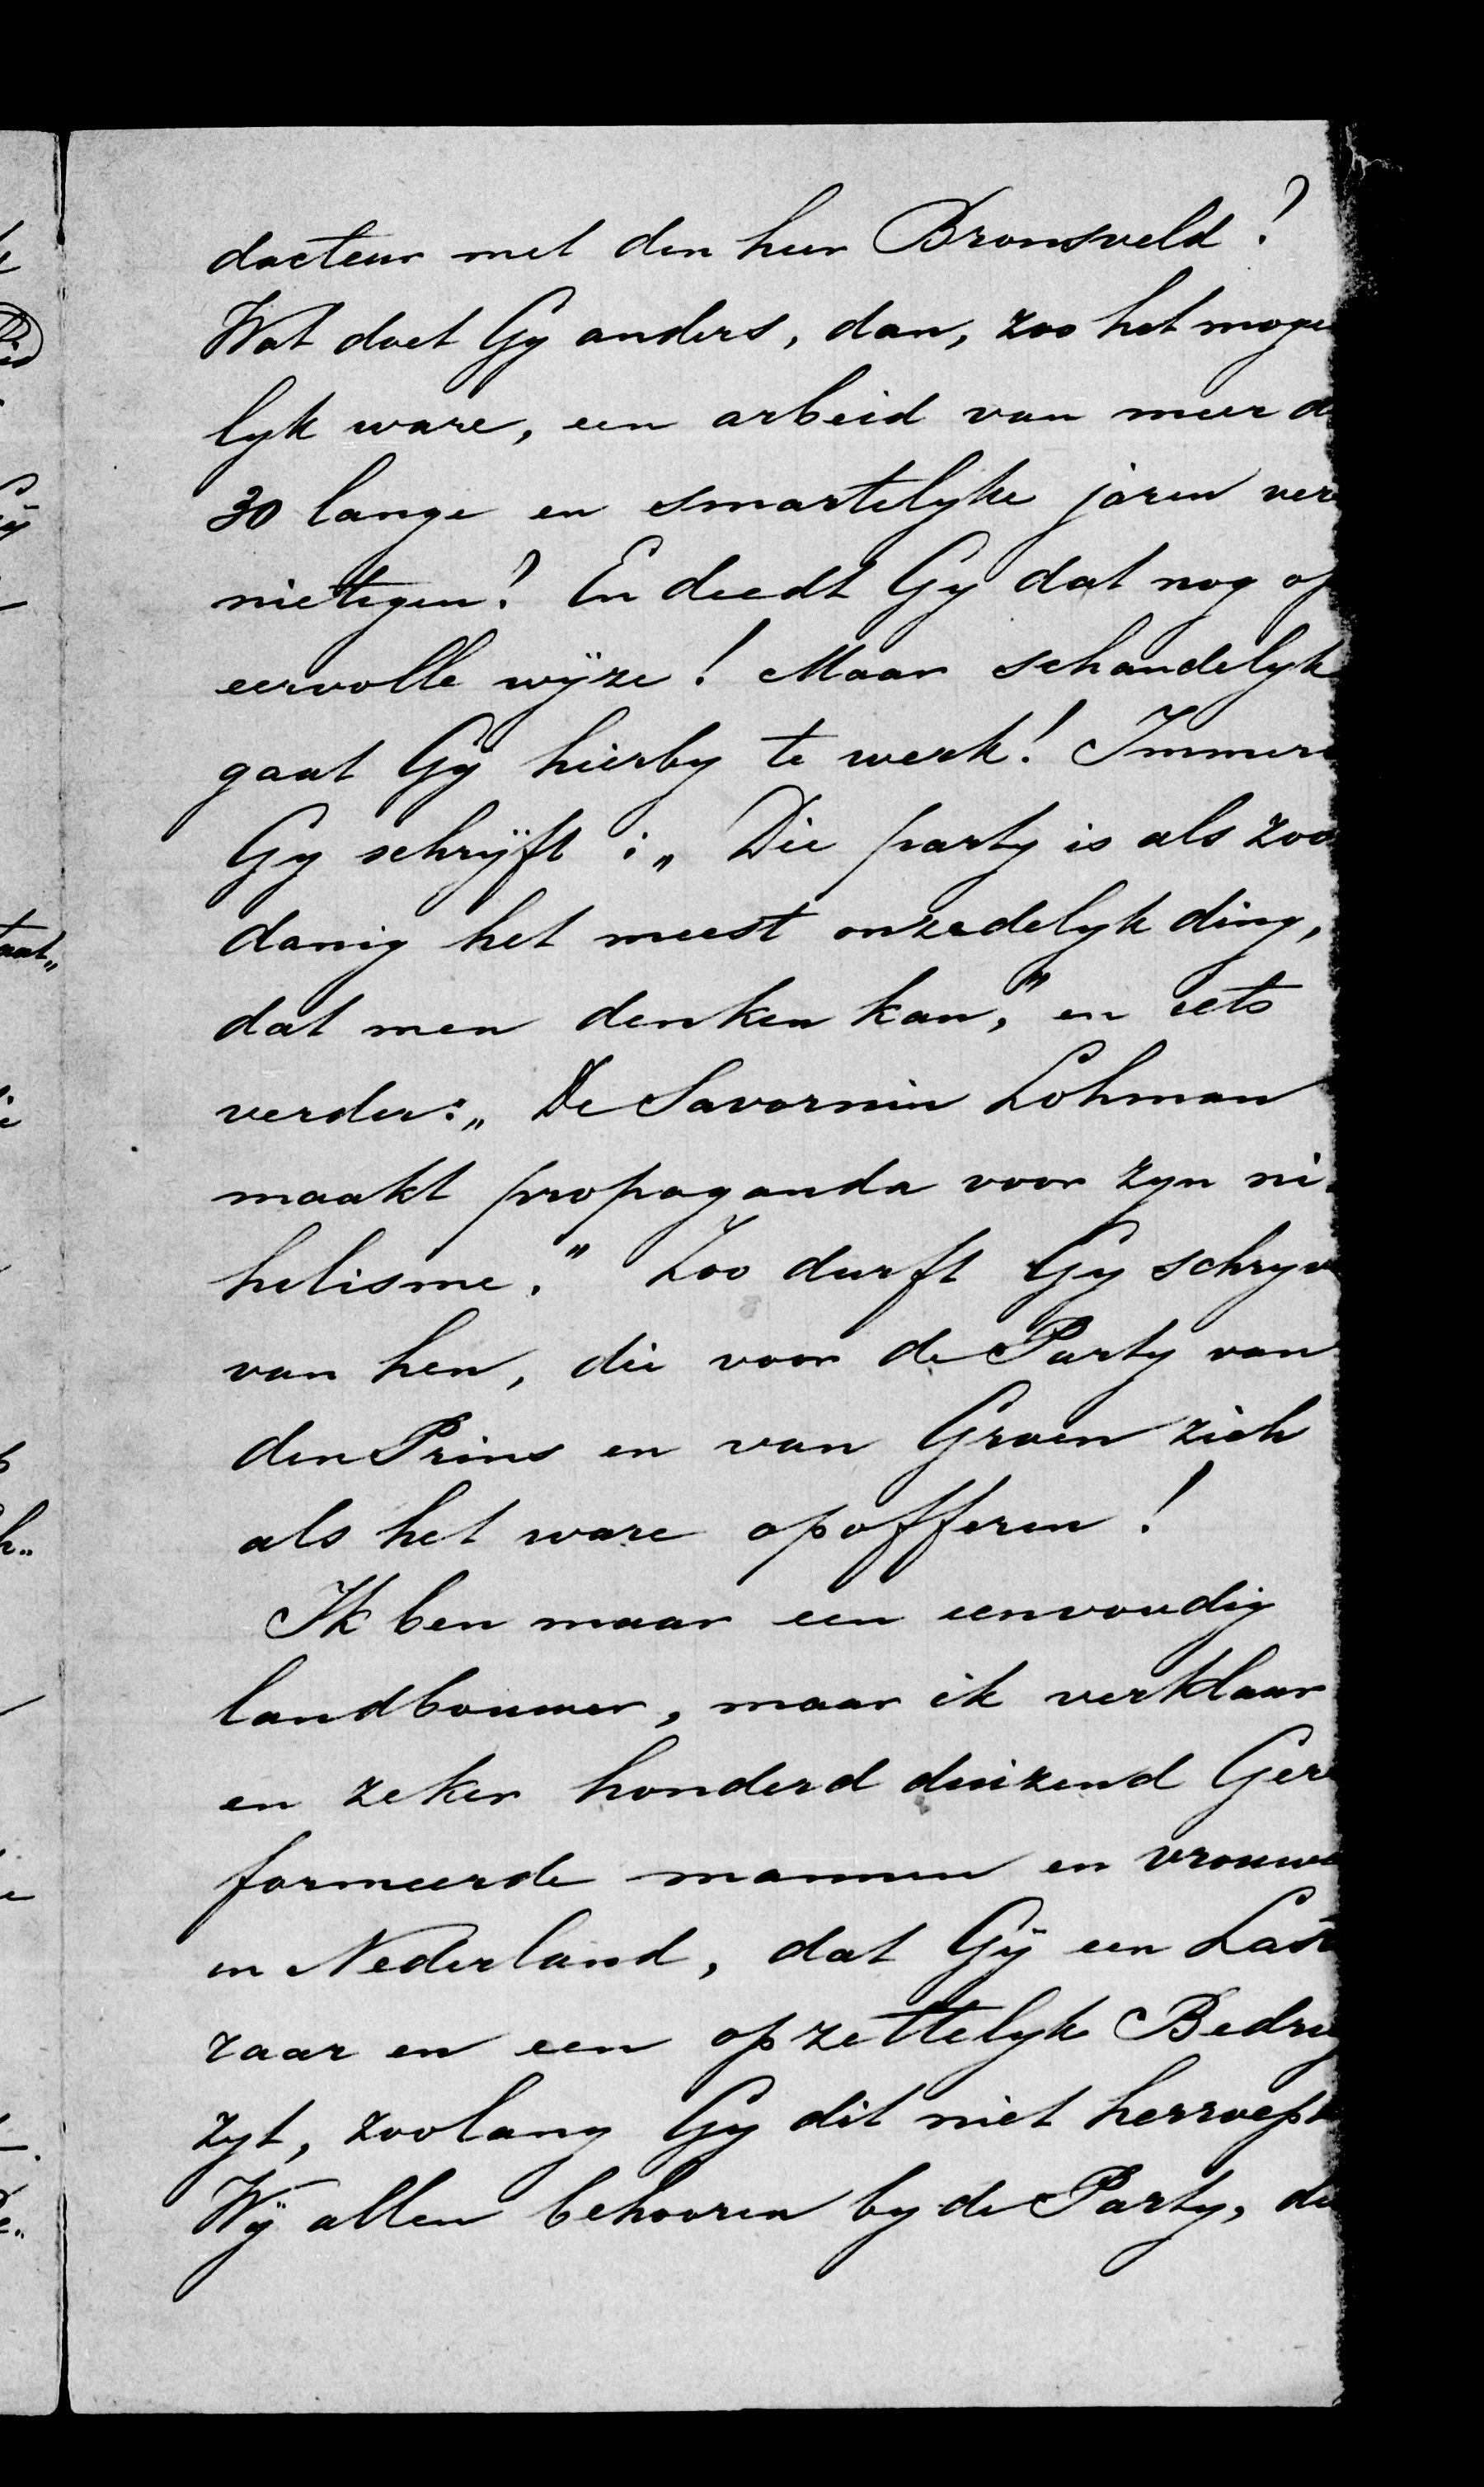 dacteur met den heer Bronsveld?
Wat doet Gy anders, dan, zoo het moge
lyk ware, een arbeid van meer d
30 lange en smartelyke jaren ver
nietegen? En deedt Gy dat nog op
eervolle wÿze! Maar schandelyk
gaat Gÿ hierby te werk! Immers
Gy schrÿft: „Die party is als zoo
danig het meest onzedelyk ding,
dat men denken kan," en iets
verder: „De Savornin Lohman
maakt propaganda voor zyn ni-
helisme." Zoo durft Gy schryv
van hen, die voor de Party van
den Prins en van Groen zich
als het ware opofferen!
Ik ben maar een eenvoudig
landbouwer, maar ik verklaar
en zeker honderd duizend Gere
formeerde mannen en vrouwe
in Nederland, dat Gÿ een Last
raar en een opzettelyk Bedrie
zyt, zoolang Gy dit niet herroept
Wÿ allen behooren by de Party, die